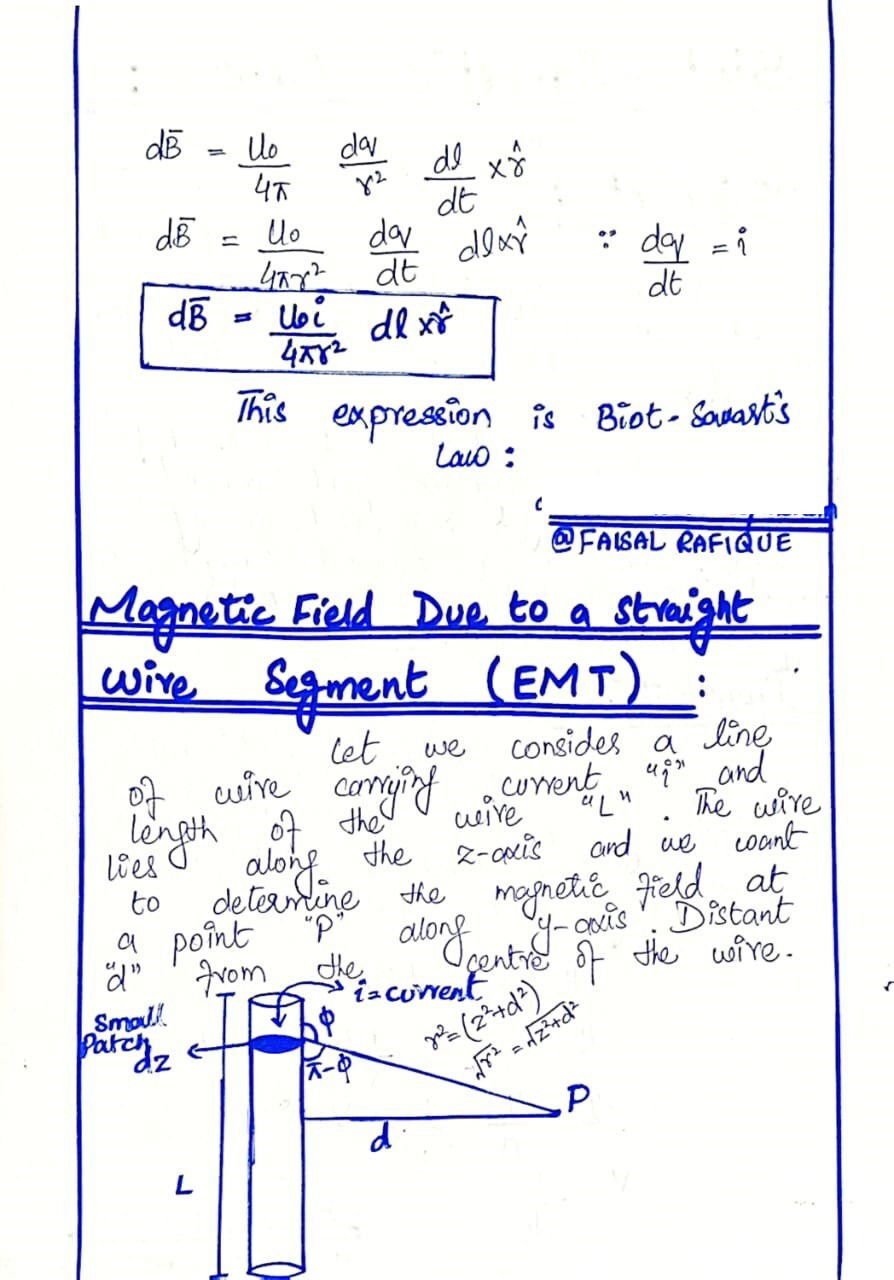 dB̄ = μ₀/4π dq/r² dl/dt × r̂
dB̄ = μ₀/4πr² dq/dt dl×r̂ ∵ dq/dt = i
dB̄ = μ₀i/4πr² dl × r̂
This expression is Biot-Savart's
Law :
@FAISAL RAFIQUE
Magnetic Field Due to a straight
wire Segment (EMT) :
Let we consider a line
of wire carrying current "i" and
length of the wire "L". The wire
lies along the z-axis and we want
to determine the magnetic field at
a point "P" along y-axis. Distant
"d" from the centre of the wire.
i = current
Small
Patch
dz
φ
π-φ
r² = (z²+d²)
√r² = √z²+d²
P
d
L